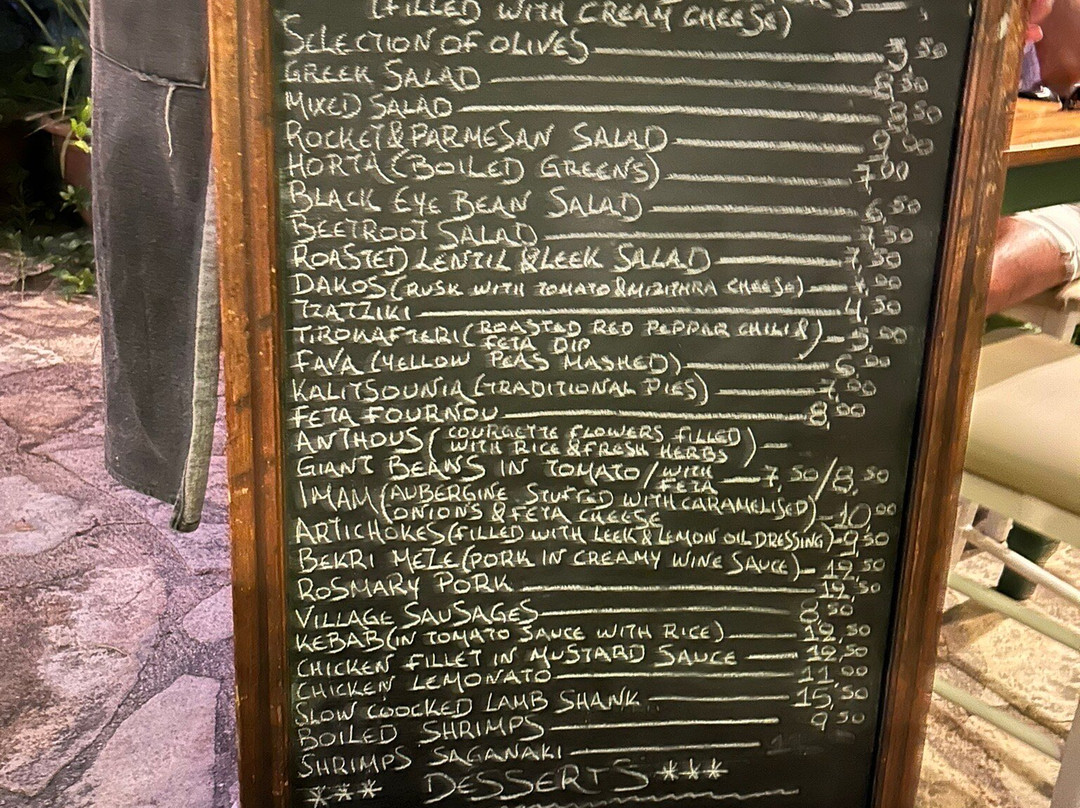 (FILLED WITH CREAM CHEESE)
SELECTION OF OLIVES 3,50
GREEK SALAD 8,50
MIXED SALAD 8,50
ROCKET & PARMESAN SALAD 9,00
HORTA (BOILED GREENS) 7,00
BLACK EYE BEAN SALAD 6,50
BEETROOT SALAD 7,50
ROASTED LENTIL & LEEK SALAD 7,50
DAKOS (RUSK WITH TOMATO & MIZITHRA CHEESE) 7,00
TZATZIKI 4,50
TIROKAFTERI (ROASTED RED PEPPER CHILI & 5,00
FETA DIP)
FAVA (YELLOW PEAS MASHED) 6,00
KALITSOUNIA (TRADITIONAL PIES) 7,00
FETA FOURNOU 8,00
ANTHOUS (COURGETTE FLOWERS FILLED
WITH RICE & FRESH HERBS)
GIANT BEANS IN TOMATO / WITH 7,50/8,50
FETA
IMAM (AUBERGINE STUFFED WITH CARAMELISED) 10,00
ONIONS & FETA CHEESE
ARTICHOKES (FILLED WITH LEEK & LEMON OIL DRESSING) 9,50
BEKRI MEZE (PORK IN CREAMY WINE SAUCE) 12,50
ROSMARY PORK 12,50
VILLAGE SAUSAGES 8,50
KEBAB (IN TOMATO SAUCE WITH RICE) 12,50
CHICKEN FILLET IN MUSTARD SAUCE 12,50
CHICKEN LEMONATO 11,00
SLOW COOCKED LAMB SHANK 15,50
BOILED SHRIMPS 9,50
SHRIMPS SAGANAKI
*** DESSERTS ***